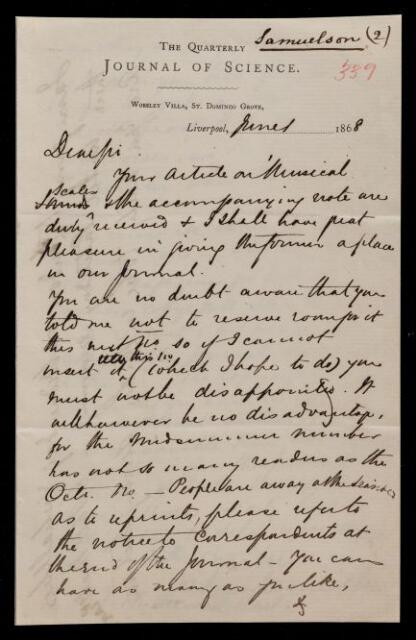 Samuelson (2)
THE QUARTERLY
JOURNAL OF SCIENCE.
339
WORSLEY VILLA, ST. DOMINGO GROVE,
Liverpool, June 1 1868
Dear Sir
Your Article on "Musical
Scales & the accompanying note are
duly received & I shall have great
pleasure in giving the former a place
in our Journal.
You are no doubt aware that you
told me not to reserve room for it
this next No. so if I cannot
insert it (which I hope to do) you
must not be disappointed. It
will however be no disadvantage,
for the Midsummer number
has not so many readers as the
Octr. No. — People are away at the
as to reprints, please refer to
the notice to Correspondents at
the end of the Journal — You can
have as many as you like,